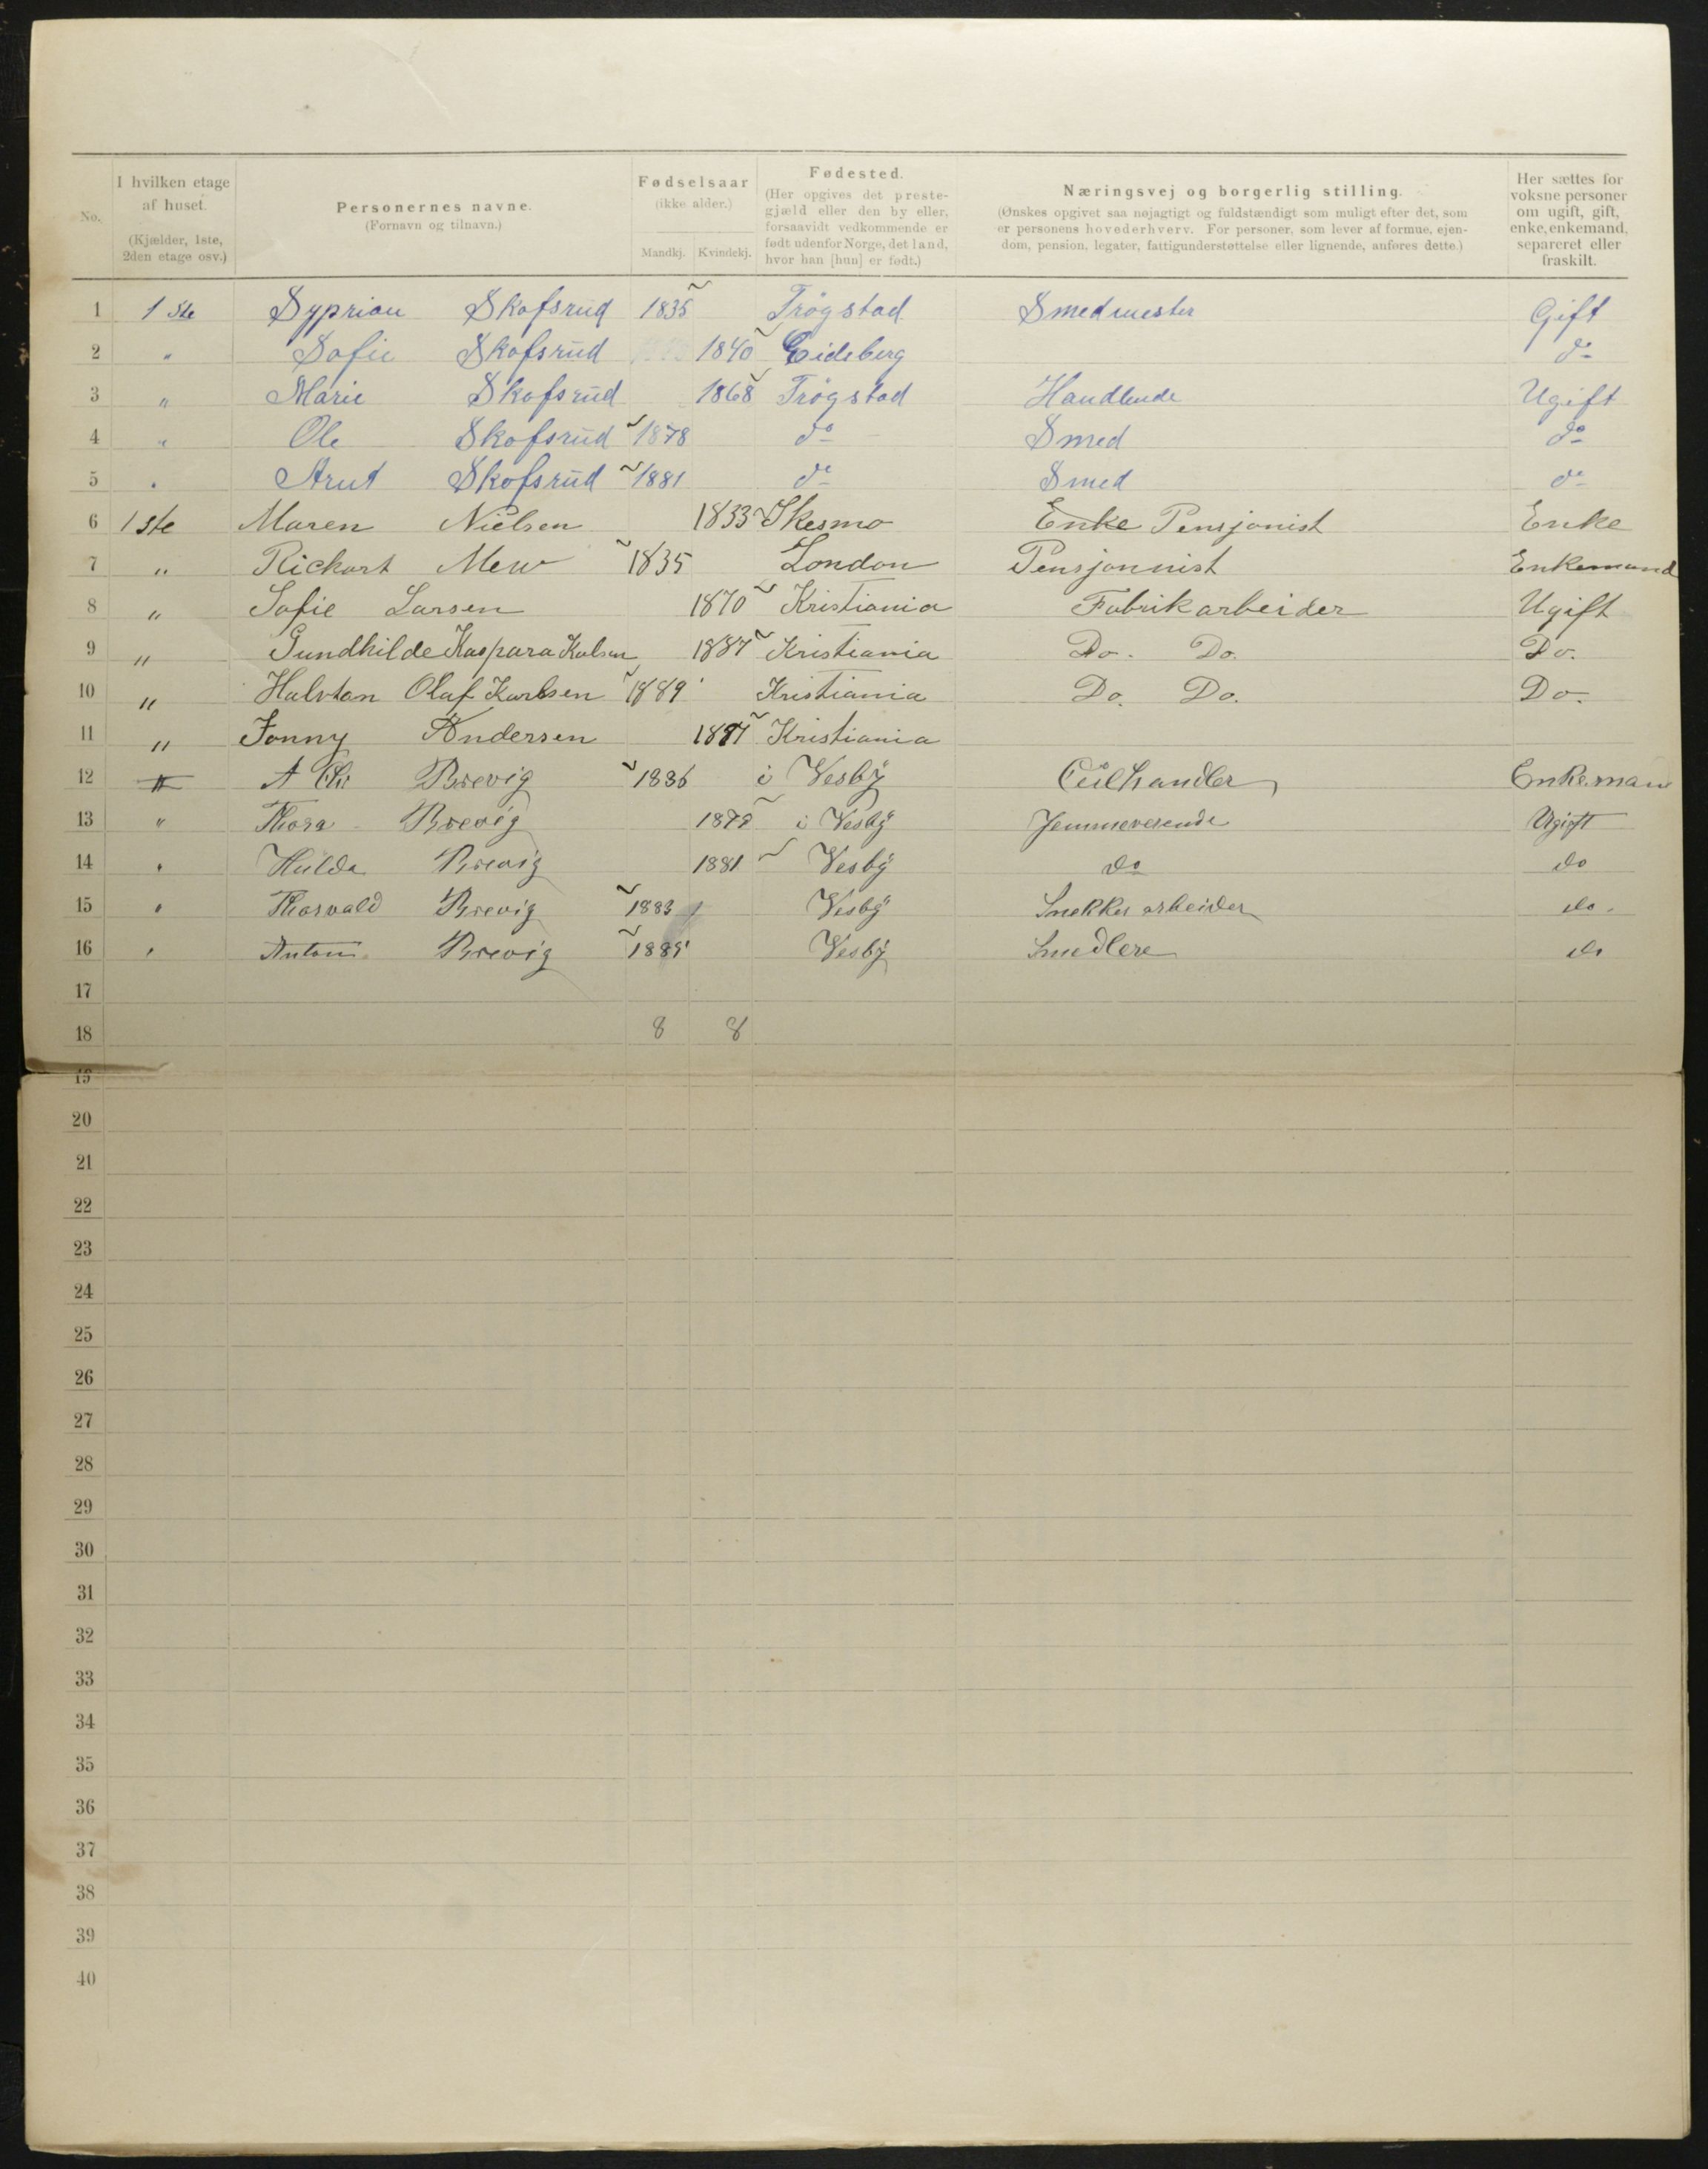 No.
I hvilken etage af huset.
(Kjælder, 1ste, 2den etage osv.)
Personernes navne.
(Fornavn og tilnavn.)
Fødselsaar
(ikke alder.)
Mandkj. Kvindekj.
Fødested.
(Her opgives det prestegjæld eller den by eller, forsaavidt vedkommende er født udenfor Norge, det land, hvor han [hun] er født.)
Næringsvej og borgerlig stilling.
(Ønskes opgivet saa nøjagtigt og fuldstændigt som muligt efter det, som er personens hovederhverv. For personer, som lever af formue, ejendom, pension, legater, fattigunderstøttelse eller lignende, anføres dette.)
Her sættes for voksne personer om ugift, gift, enke, enkemand, separeret eller fraskilt.
1 1ste Syprian Skofsrud 1835 Trøgstad Smedmester Gift
2 " Sofie Skofsrud 1840 Eideberg do
3 " Marie Skofsrud 1868 Trøgstad Handlende Ugift
4 " Ole Skofsrud 1878 do Smed do
5 " Skofsrud 1881 do Smed do
6 1ste Maren Nielsen 1833 Skesmo Enke Pensjonist Enke
7 " Richart Mew 1835 London Pensjonnist Enkemand
8 " Sofie Larsen 1870 Kristiania Fabrikarbeider Ugift
9 " Gundhilde Kaspara 1887 Kristiania Do. Do. Do.
10 " Halvtan Olaf Karlsen 1889 Kristiania Do. Do. Do.
11 " Andersen Kristiania
12 " A Chr Brevig 1836 i Vesby Enkeman
13 " Thora Brevig i Vesby Jemmeverende Ugift
14 " Hulda Brevig 1881 Vesby do do
15 " Thorvald Brevig 1883 Vesby Snekker arbeider do.
16 " Anton Brevig Vesby Smedlere do
17
18 8 8
19
20
21
22
23
24
25
26
27
28
29
30
31
32
33
34
35
36
37
38
39
40